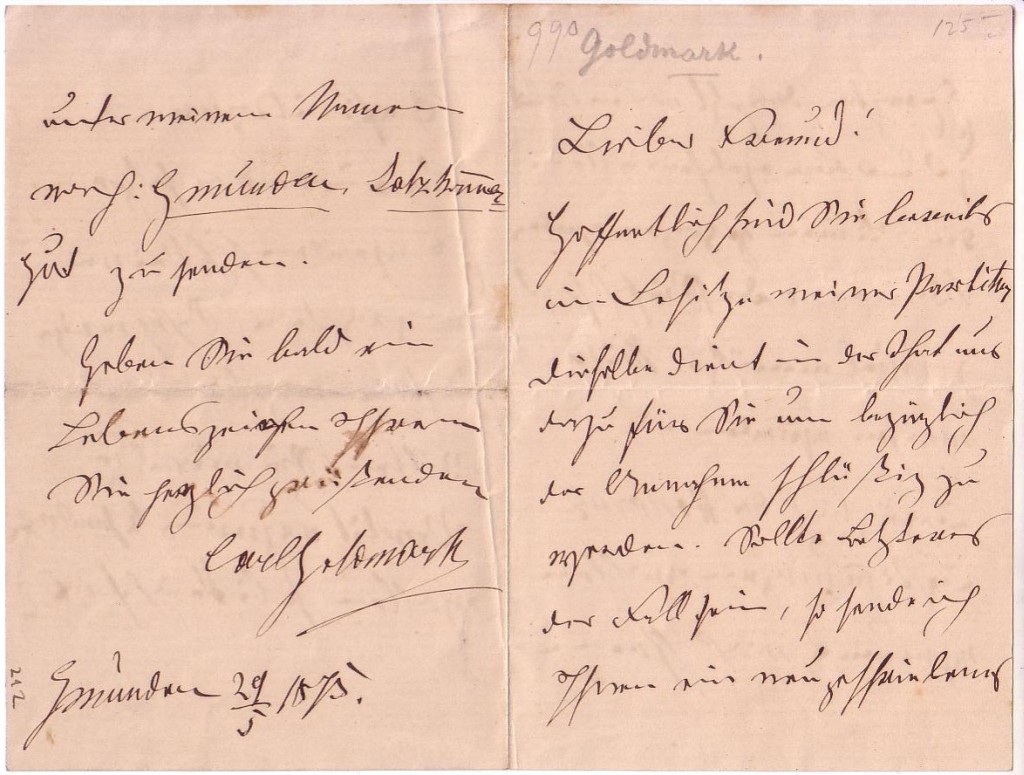 990 Goldmark.
125
Lieber Freund!
Hoffentlich sind Sie bereits
im Besitze meiner Partitur
dieselbe dient in der That nur
dazu für Sie um bezüglich
der Annahme schlüßig zu
werden. Sollte Letzteres
der Fall sein, so sende ich
Ihnen ein neugeschriebenes
unter meinem Namen
nach: Gmunden, Salzkammer
gut zu senden.
Geben Sie bald ein
Lebenszeichen Ihrem
Sie herzlich grüßenden
Carl Goldmark
Gmunden 29/5 1875.